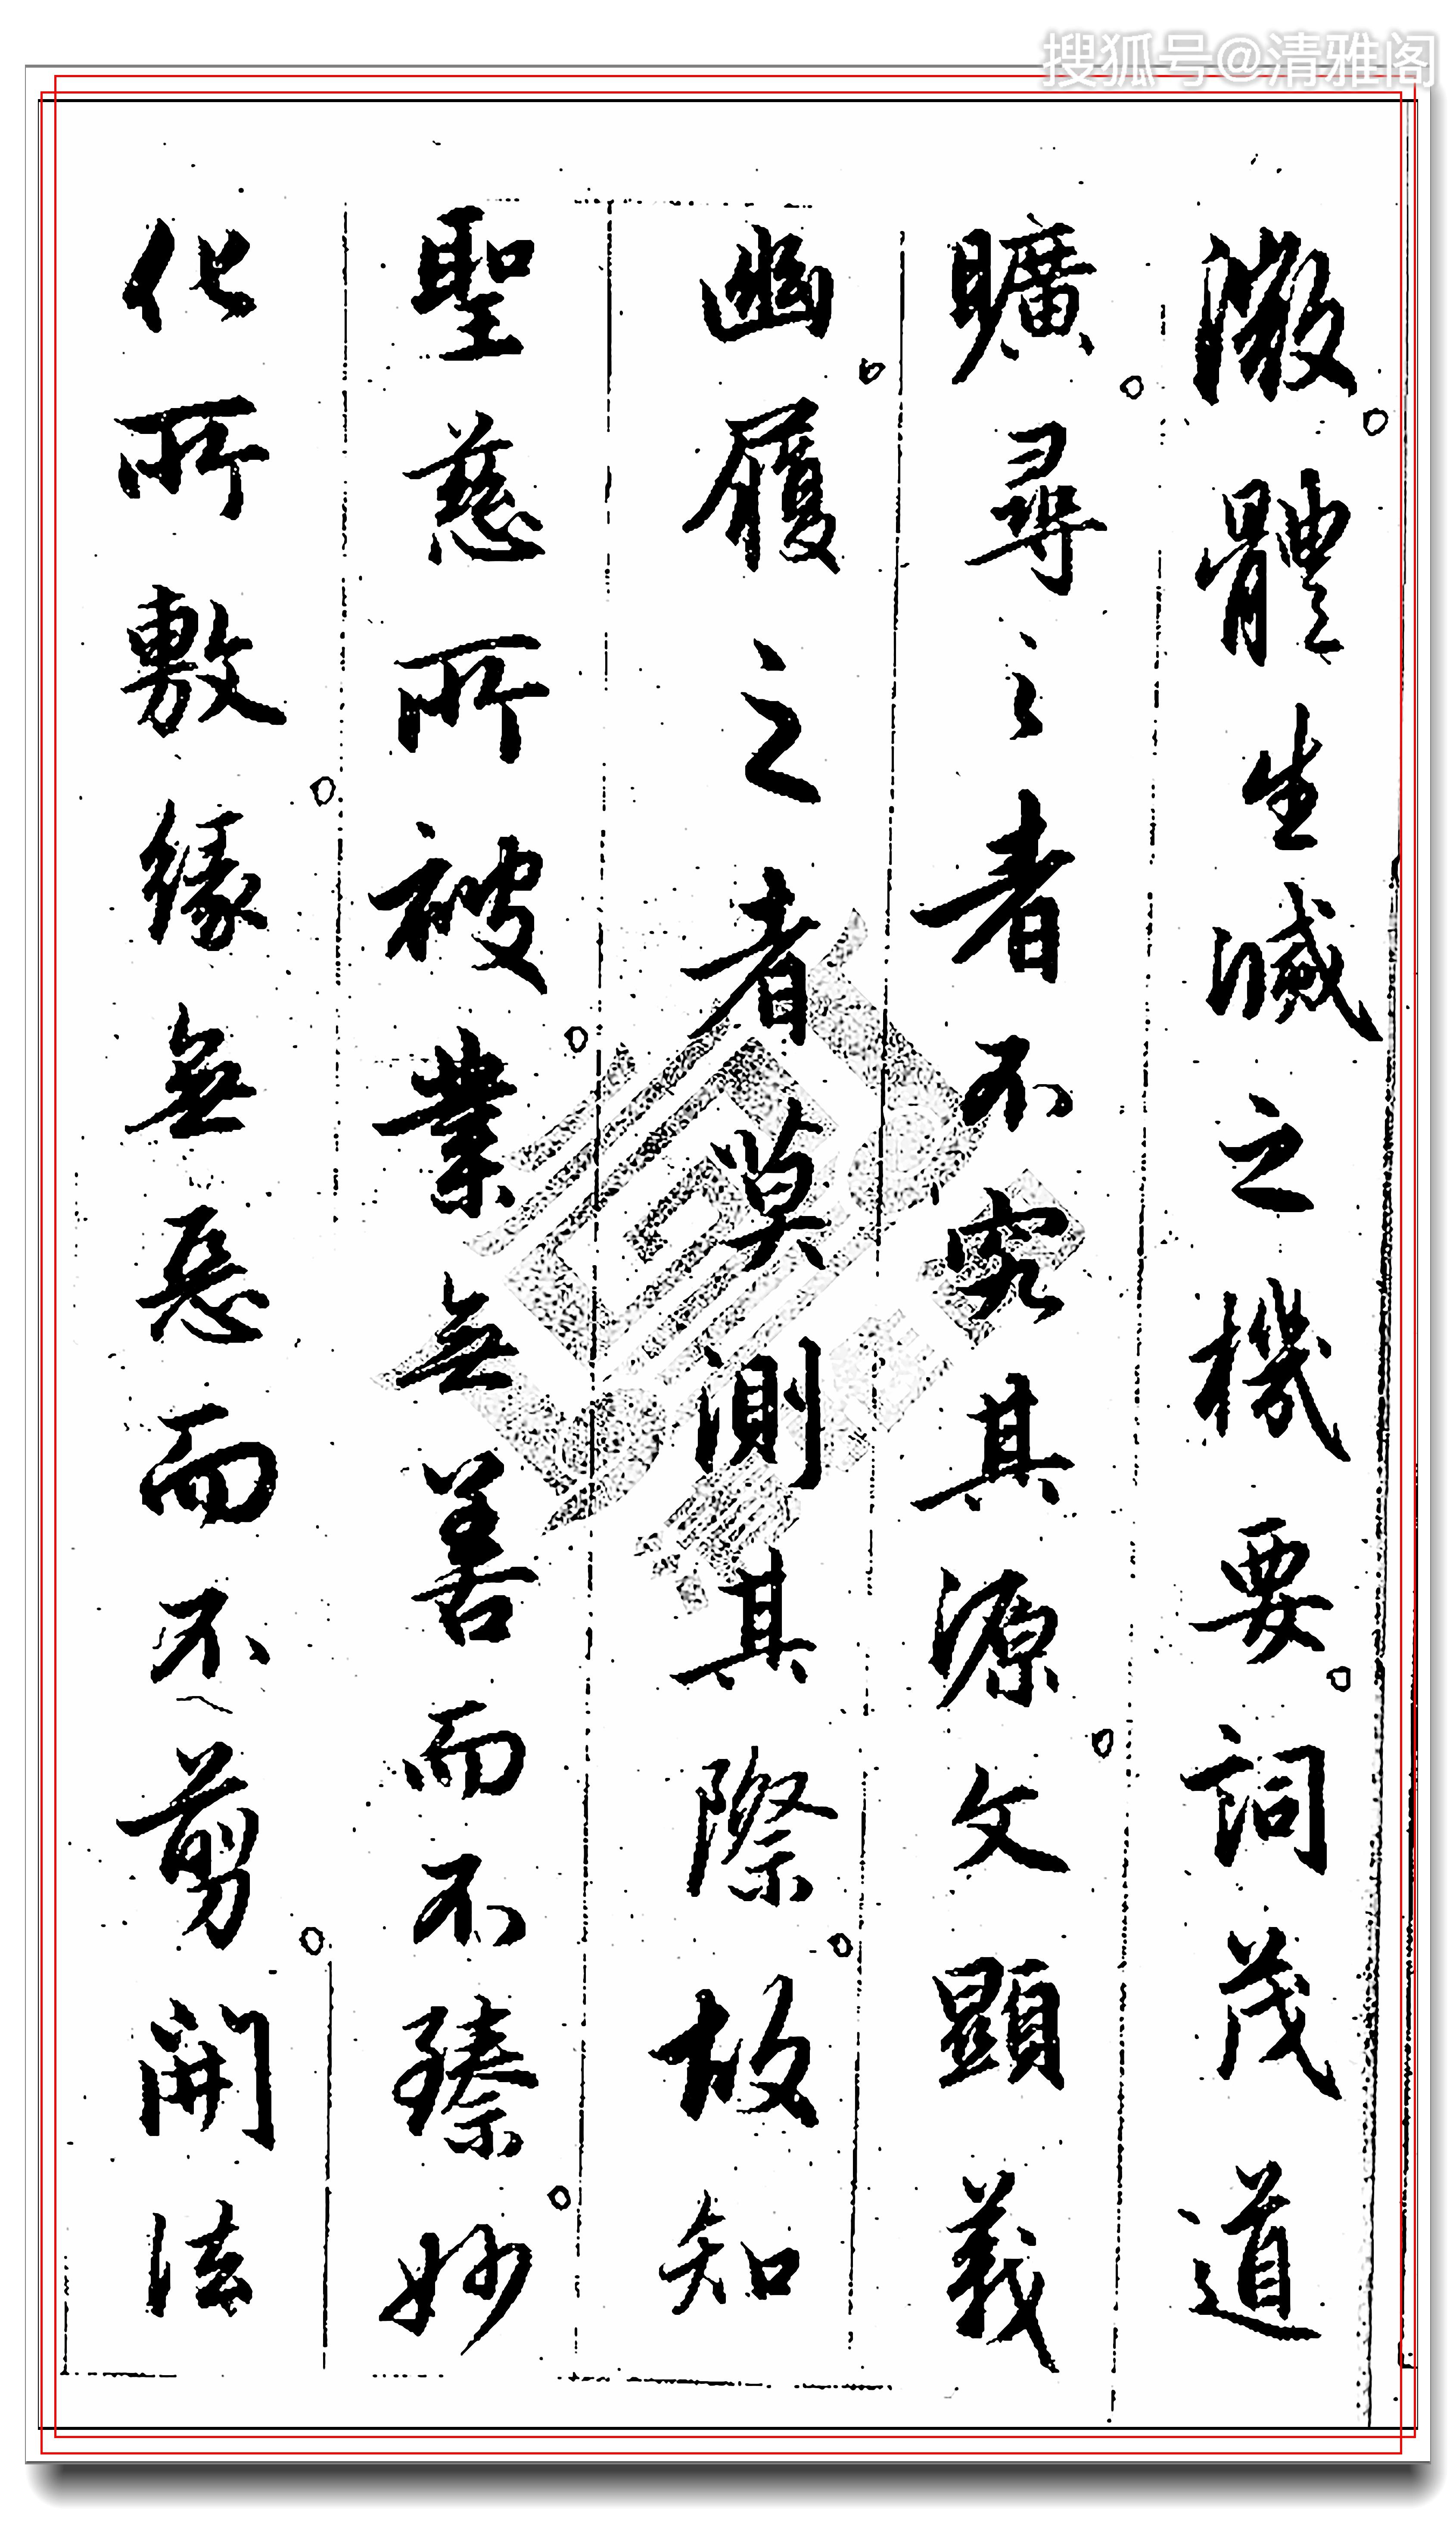 搜狐号@清雅阁
微體生滅之機要詞茂道
曠尋之者不究其源文顯義
幽履之者莫測其際故知
聖慈所被業無善而不臻妙
化所敷緣無惡而不剪開法